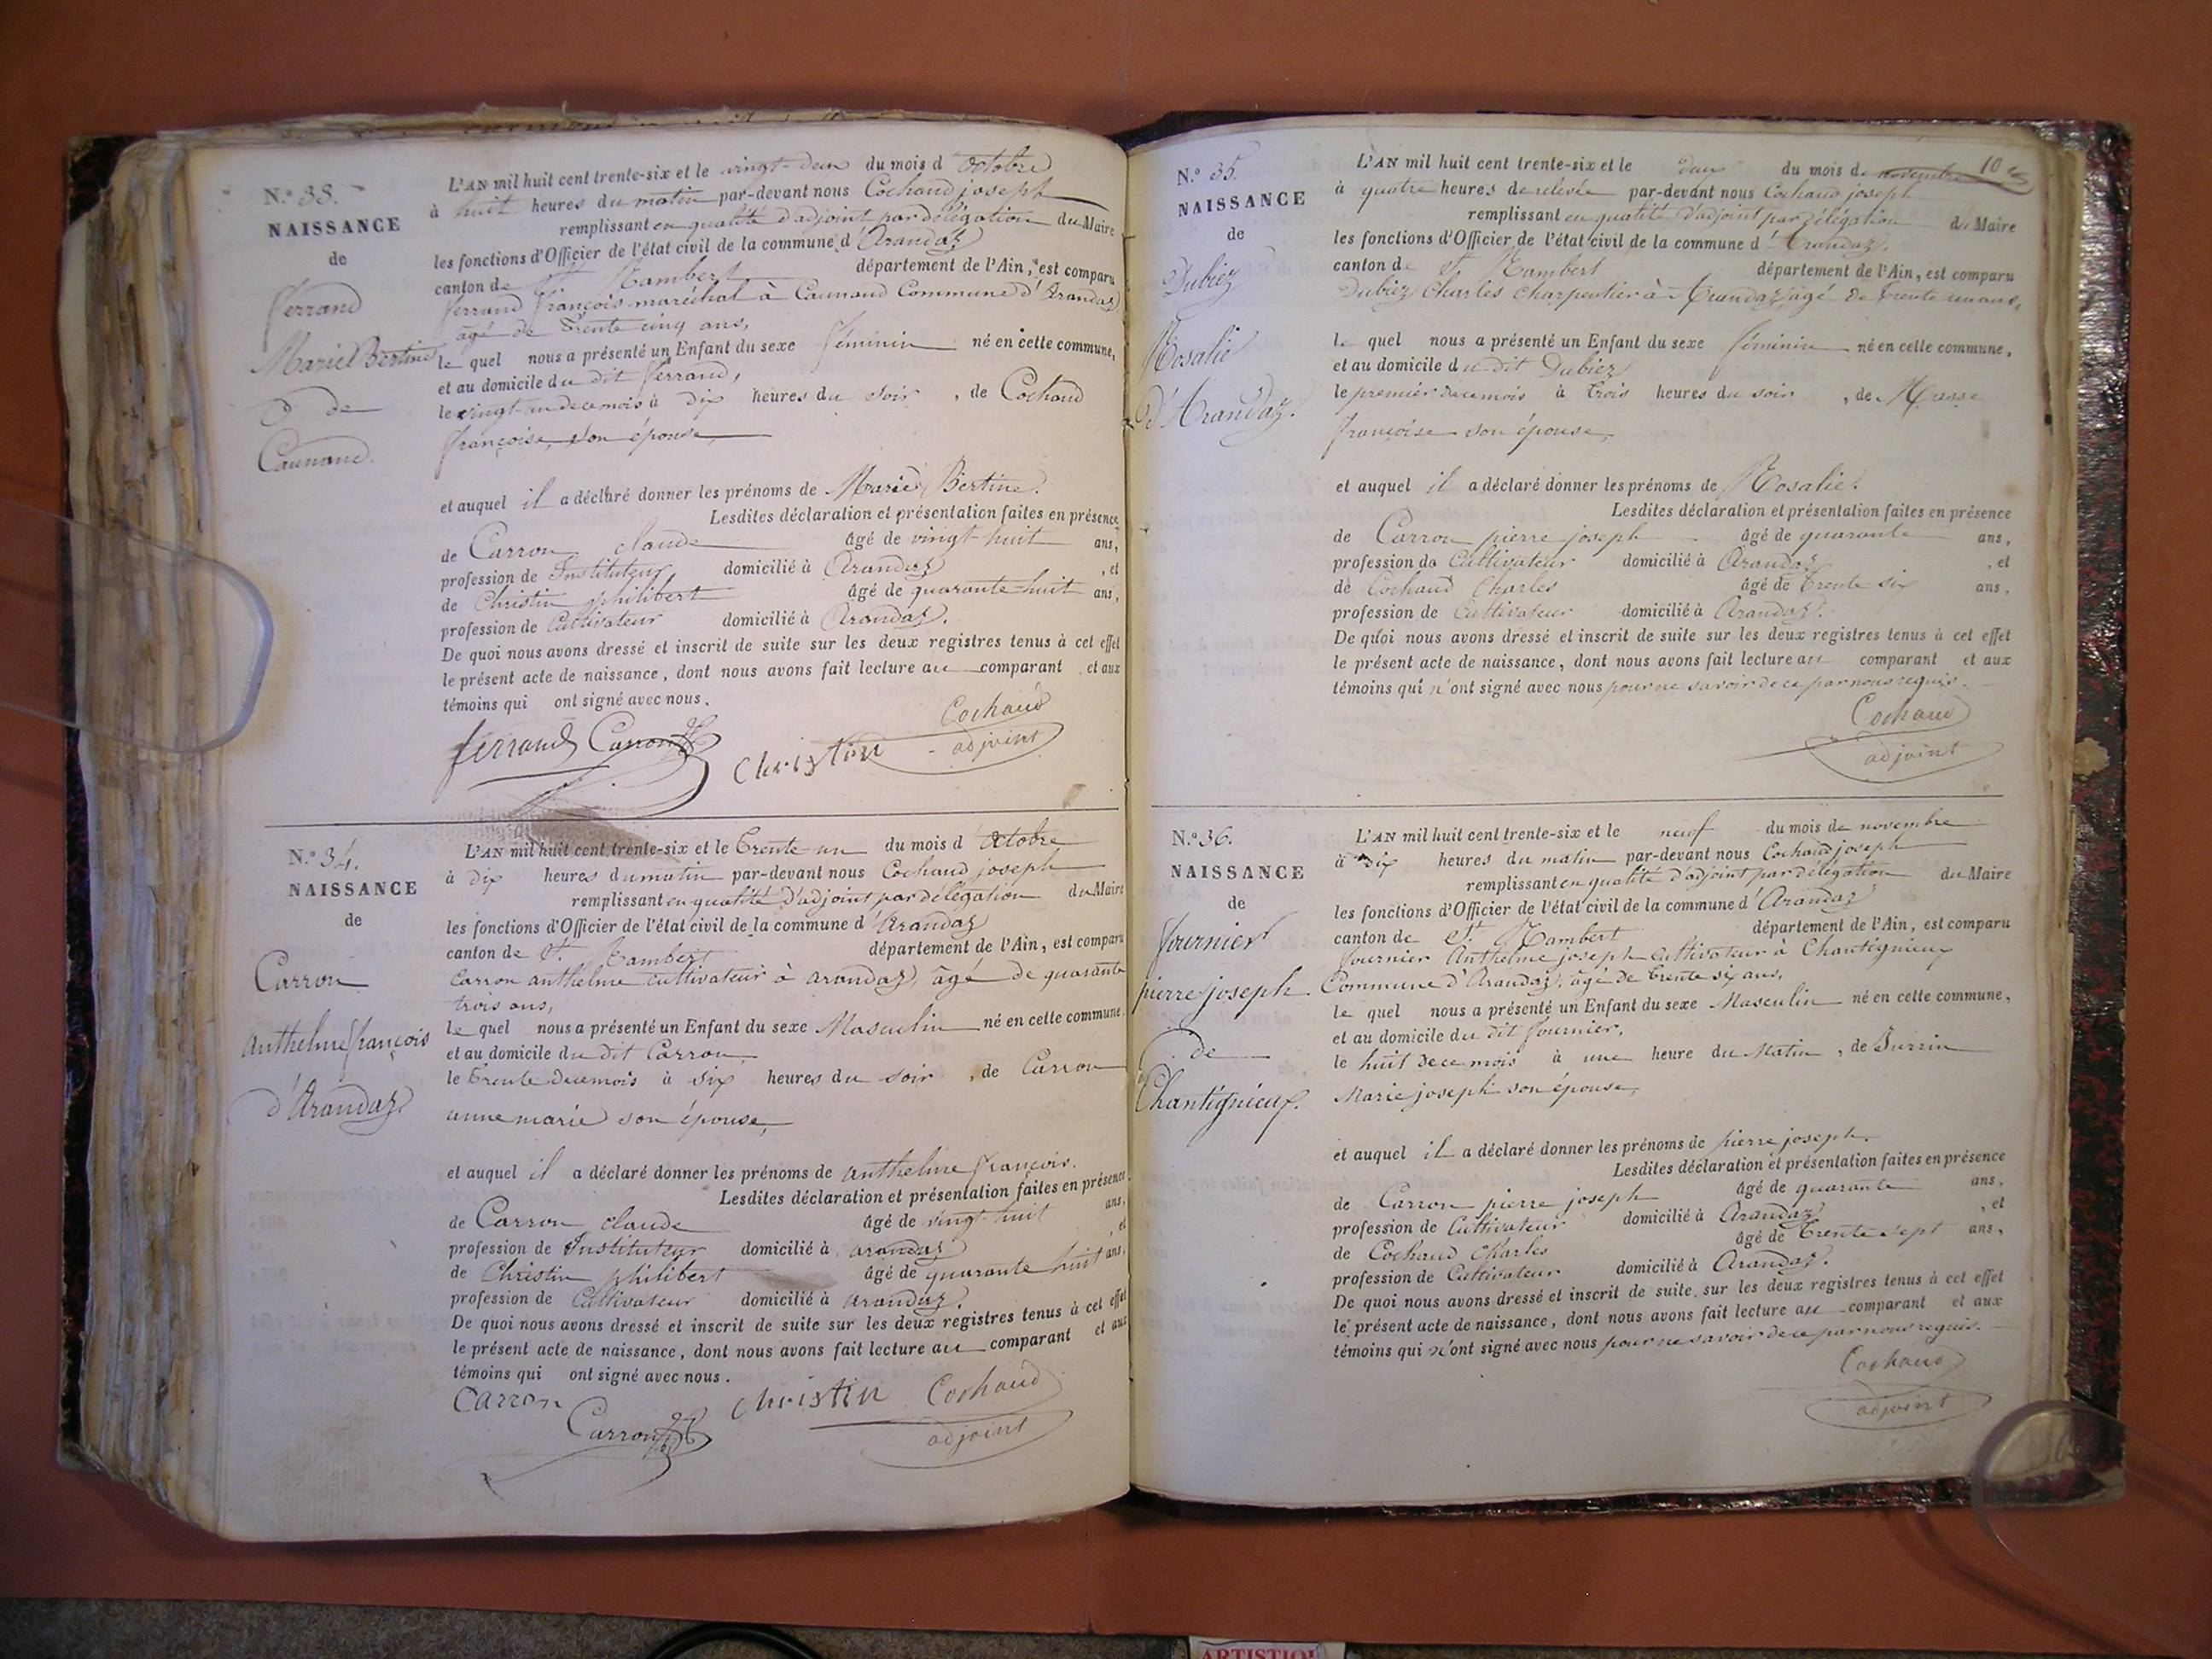 N.° 33.
NAISSANCE
de
ferrand
Marie Bertine
de
Caunand.
L'AN mil huit cent trente-six et le vingt-deux du mois d'octobre
à huit heures du matin par-devant nous Cochaud joseph
remplissant en qualité d'adjoint par délégation du Maire
les fonctions d'Officier de l'état civil de la commune d'Arandaz
canton de St Rambert département de l'Ain, est comparu
ferrand françois maréchal à Caunand Commune d'Arandaz
âgé de trente cinq ans,
le quel nous a présenté un Enfant du sexe féminin né en cette commune,
et au domicile du dit ferrand,
le vingt-un de ce mois à dix heures du soir, de Cochaud
françoise, son épouse,
et auquel il a déclaré donner les prénoms de Marie Bertine.
Lesdites déclaration et présentation faites en présence
de Carron claude âgé de vingt-huit ans,
profession de Instituteur domicilié à Arandaz, et
de Christin philibert âgé de quarante-huit ans,
profession de Cultivateur domicilié à Arandaz.
De quoi nous avons dressé et inscrit de suite sur les deux registres tenus à cet effet
le présent acte de naissance, dont nous avons fait lecture au comparant et aux
témoins qui ont signé avec nous.
ferrand Carron christin Cochaud
adjoint
N.° 34.
NAISSANCE
de
Carron
anthelme françois
d'Arandaz
L'AN mil huit cent trente-six et le trente-un du mois d'octobre
à dix heures du matin par-devant nous Cochaud joseph
remplissant en qualité d'adjoint par délégation du Maire
les fonctions d'Officier de l'état civil de la commune d'Arandaz
canton de St. Rambert département de l'Ain, est comparu
Carron anthelme cultivateur à arandaz, âgé de quarante
trois ans,
le quel nous a présenté un Enfant du sexe Masculin né en cette commune,
et au domicile du dit Carron
le trente de ce mois à six heures du soir, de Carron
anne marie son épouse,
et auquel il a déclaré donner les prénoms de anthelme françois.
Lesdites déclaration et présentation faites en présence
de Carron claude âgé de vingt-huit ans,
profession de Instituteur domicilié à arandaz, et
de Christin philibert âgé de quarante huit ans,
profession de Cultivateur domicilié à arandaz.
De quoi nous avons dressé et inscrit de suite sur les deux registres tenus à cet effet
le présent acte de naissance, dont nous avons fait lecture au comparant et aux
témoins qui ont signé avec nous.
Carron christin Cochaud
Carron adjoint
10
N.° 35.
NAISSANCE
de
Dubiez
Rosalie
d'Arandaz.
L'AN mil huit cent trente-six et le deux du mois de novembre
à quatre heures de relevée par-devant nous Cochaud joseph
remplissant en qualité d'adjoint par délégation du Maire
les fonctions d'Officier de l'état civil de la commune d'Arandaz,
canton de St Rambert département de l'Ain, est comparu
Dubiez Charles Charpentier à Arandaz âgé de trente un ans,
le quel nous a présenté un Enfant du sexe féminin né en cette commune,
et au domicile du dit Dubiez
le premier de ce mois à trois heures du soir, de Masse
françoise son épouse,
et auquel il a déclaré donner les prénoms de Rosalie.
Lesdites déclaration et présentation faites en présence
de Carron pierre joseph âgé de quarante ans,
profession de Cultivateur domicilié à Arandaz, et
de Cochaud Charles âgé de trente six ans,
profession de Cultivateur domicilié à Arandaz.
De quoi nous avons dressé et inscrit de suite sur les deux registres tenus à cet effet
le présent acte de naissance, dont nous avons fait lecture au comparant et aux
témoins qui n'ont signé avec nous pour ne savoir de ce par nous requis.
Cochaud
adjoint
N.° 36.
NAISSANCE
de
fournier
pierre joseph
de
Chantignieux.
L'AN mil huit cent trente-six et le neuf du mois de novembre
à dix heures du matin par-devant nous Cochaud joseph
remplissant en qualité d'adjoint par délégation du Maire
les fonctions d'Officier de l'état civil de la commune d'Arandaz
canton de St Rambert département de l'Ain, est comparu
fournier Anthelme joseph cultivateur à Chantignieux
Commune d'Arandaz, âgé de trente six ans,
le quel nous a présenté un Enfant du sexe Masculin né en cette commune,
et au domicile du dit fournier,
le huit de ce mois à une heure du Matin, de Surrin
Marie joseph son épouse,
et auquel il a déclaré donner les prénoms de pierre joseph.
Lesdites déclaration et présentation faites en présence
de Carron pierre joseph âgé de quarante ans,
profession de Cultivateur domicilié à Arandaz, et
de Cochaud Charles âgé de trente sept ans,
profession de Cultivateur domicilié à Arandaz.
De quoi nous avons dressé et inscrit de suite sur les deux registres tenus à cet effet
le présent acte de naissance, dont nous avons fait lecture au comparant et aux
témoins qui n'ont signé avec nous pour ne savoir de ce par nous requis.
Cochaud
adjoint